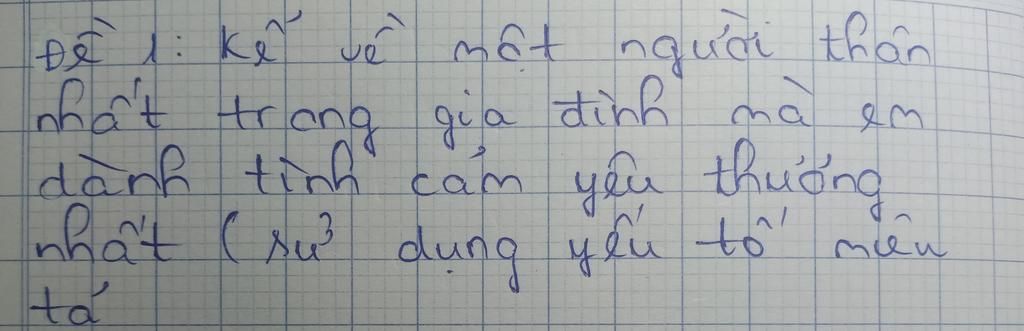 Đề 1: Kể về một người thân
nhất trong gia đình mà em
dành tình cảm yêu thướng
nhất (sử dụng yếu tố miêu
tả